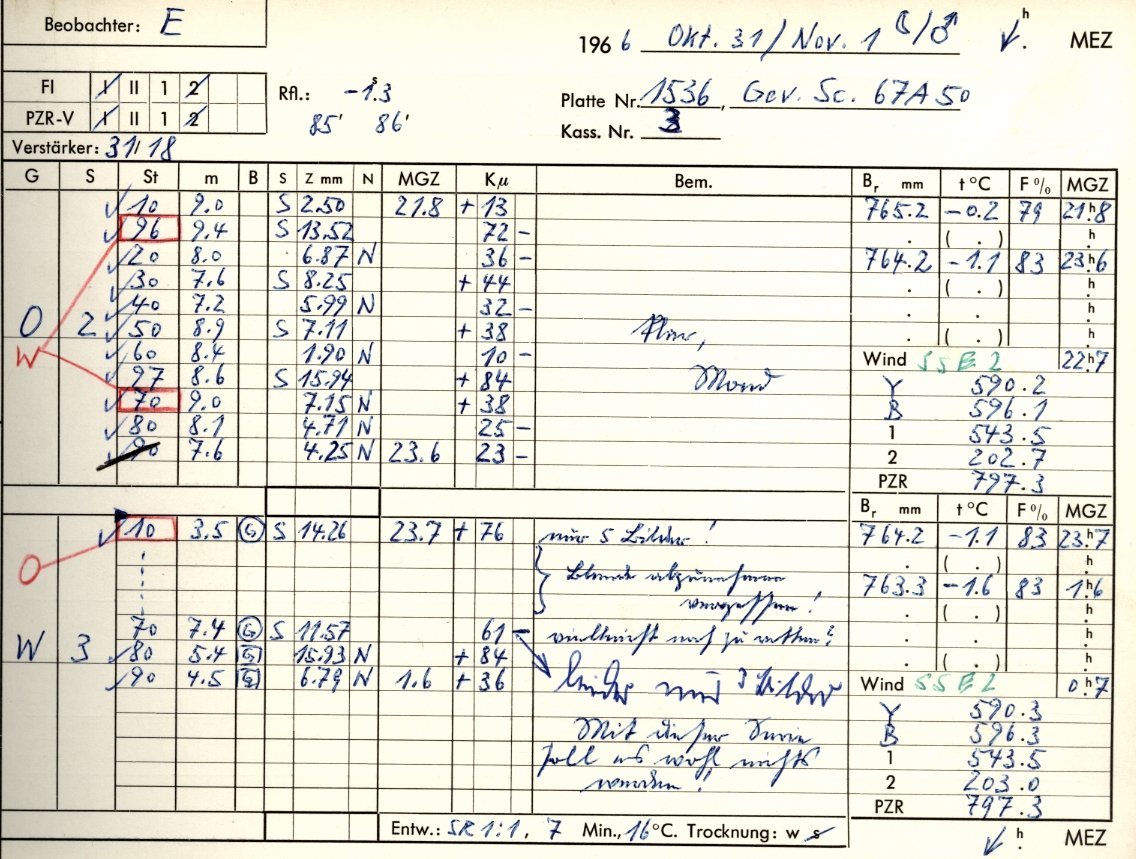 Beobachter: E
1966 Okt. 31/Nov. 1 ☾/♂ ✓ h. MEZ
FI I II 1 2 Rfl.: -1.3 s
PZR-V I II 1 2 85' 86' Platte Nr. 1536, Gev. Sc. 67A50
Kass. Nr. 3
Verstärker: 31/18
G S St m B S Z mm N MGZ Kµ Bem. Br mm t °C F % MGZ
10 9.0 S 2.50 21.8 + 13 765.2 -0.2 79 21h8
96 9.4 S 13.52 72 - . ( . ) h.
20 8.0 6.87 N 36 - 764.2 -1.1 83 23h6
30 7.6 S 8.25 + 44 . ( . ) h.
40 7.2 5.99 N 32 - . h.
O 2 50 8.9 S 7.11 + 38 klar, . ( . ) h.
W 60 8.4 1.90 N 10 - Wind SSE 2 22h7
27 8.6 S 15.94 + 84 Mond Y 590.2
70 9.0 7.15 N + 38 B 596.1
80 8.1 4.71 N 25 - 1 543.5
90 7.6 4.25 N 23.6 23 - 2 202.7
PZR 797.3
Br mm t °C F % MGZ
10 3.5 G S 14.26 23.7 + 76 nur 5 Bilder! 764.2 -1.1 83 23h7
O Blende abzunehmen . ( . ) h.
vergessen! 763.3 -1.6 83 1h6
. ( . ) h.
70 7.4 G S 11.57 61 - vielleicht noch zu retten? . h.
W 3 80 5.4 G 15.93 N + 84 . ( . ) h.
90 4.5 G 6.79 N 1.6 + 36 leider nur 3 Bilder Wind SSE 2 0h7
Y 590.3
Mit dieser Serie B 596.3
soll es wohl nichts 1 543.5
werden! 2 203.0
PZR 797.3
Entw.: SR 1:1, 7 Min., 16°C. Trocknung: w s ✓ h. MEZ